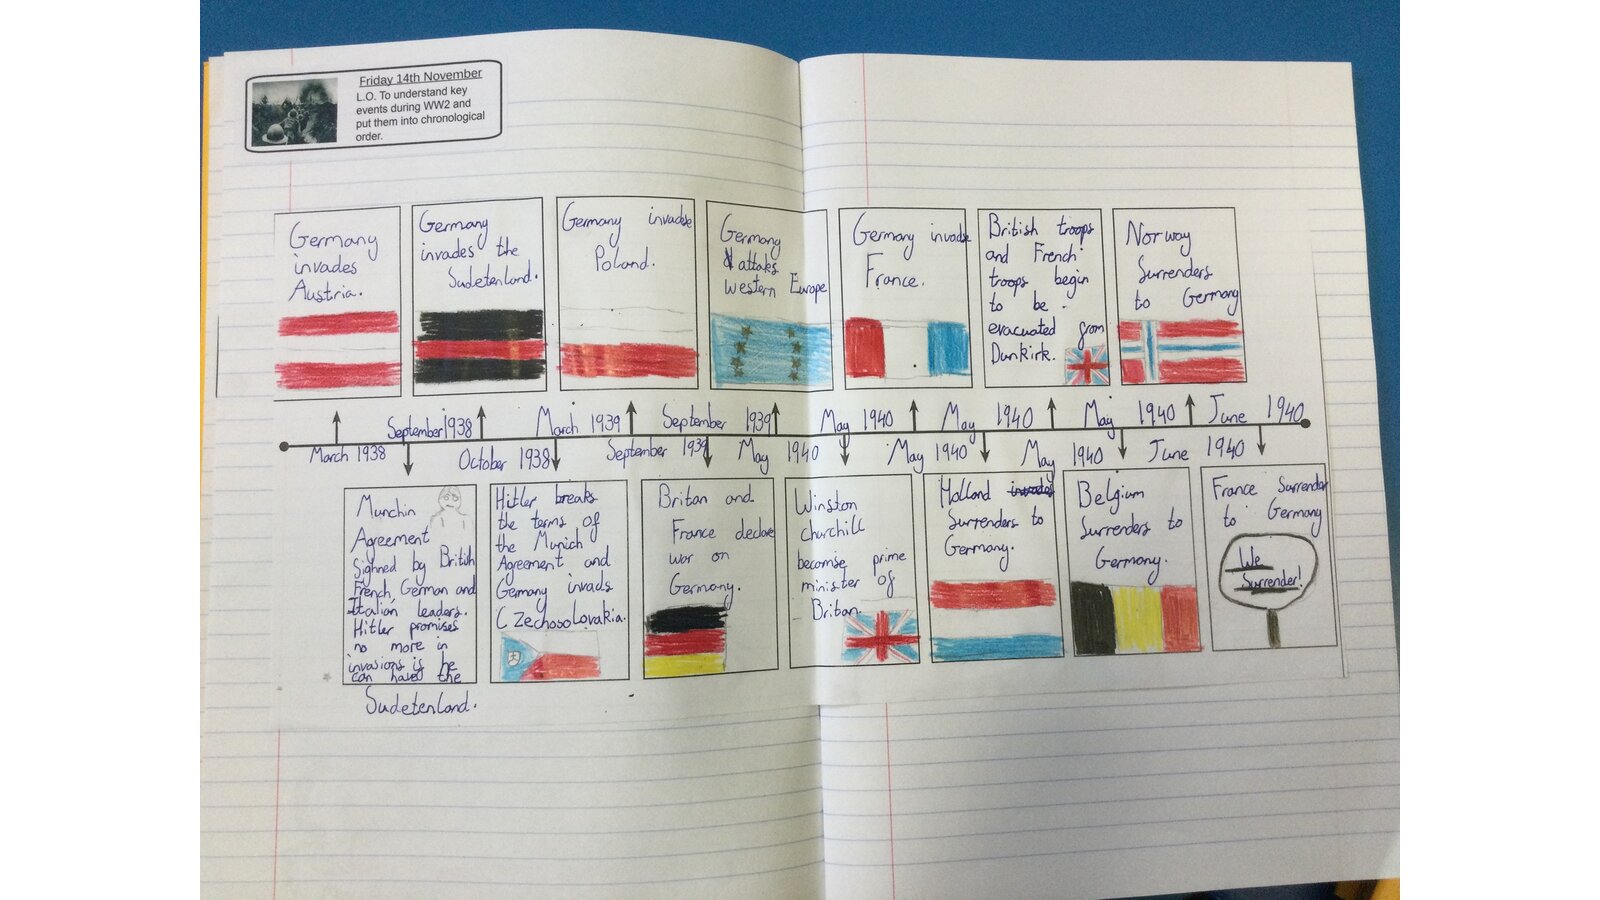 Friday 14th November
L.O. To understand key
events during WW2 and
put them into chronological
order.
Germany
invades
Austria.
Germany
invades the
Sudetenland.
Germany invade
Poland.
Germany
attaks
western Europe
Germany invade
France.
British troops
and French
troops begin
to be
evacuated from
Dunkirk.
Norway
Surrenders
to Germany
March 1938
September 1938
October 1938
March 1939
September 1939
September 1939
May 1940
May 1940
May 1940
May 1940
May 1940
May 1940
June 1940
June 1940
Munchin
Agreement
Sighned by British
French, German and
Italian leaders.
Hitler promises
no more in
invasions is he
can have the
Sudetenland.
Hitler breaks
the terms of
the Munich
Agreement and
Germany invads
Czechosolovakia.
Britan and
France declare
war on
Germany.
Winston
churchill
becomse prime
minister of
Britan.
Holland invades
Surrenders to
Germany.
Belgium
Surrenders to
Germany.
France Surrender
to Germany
We
Surrender!